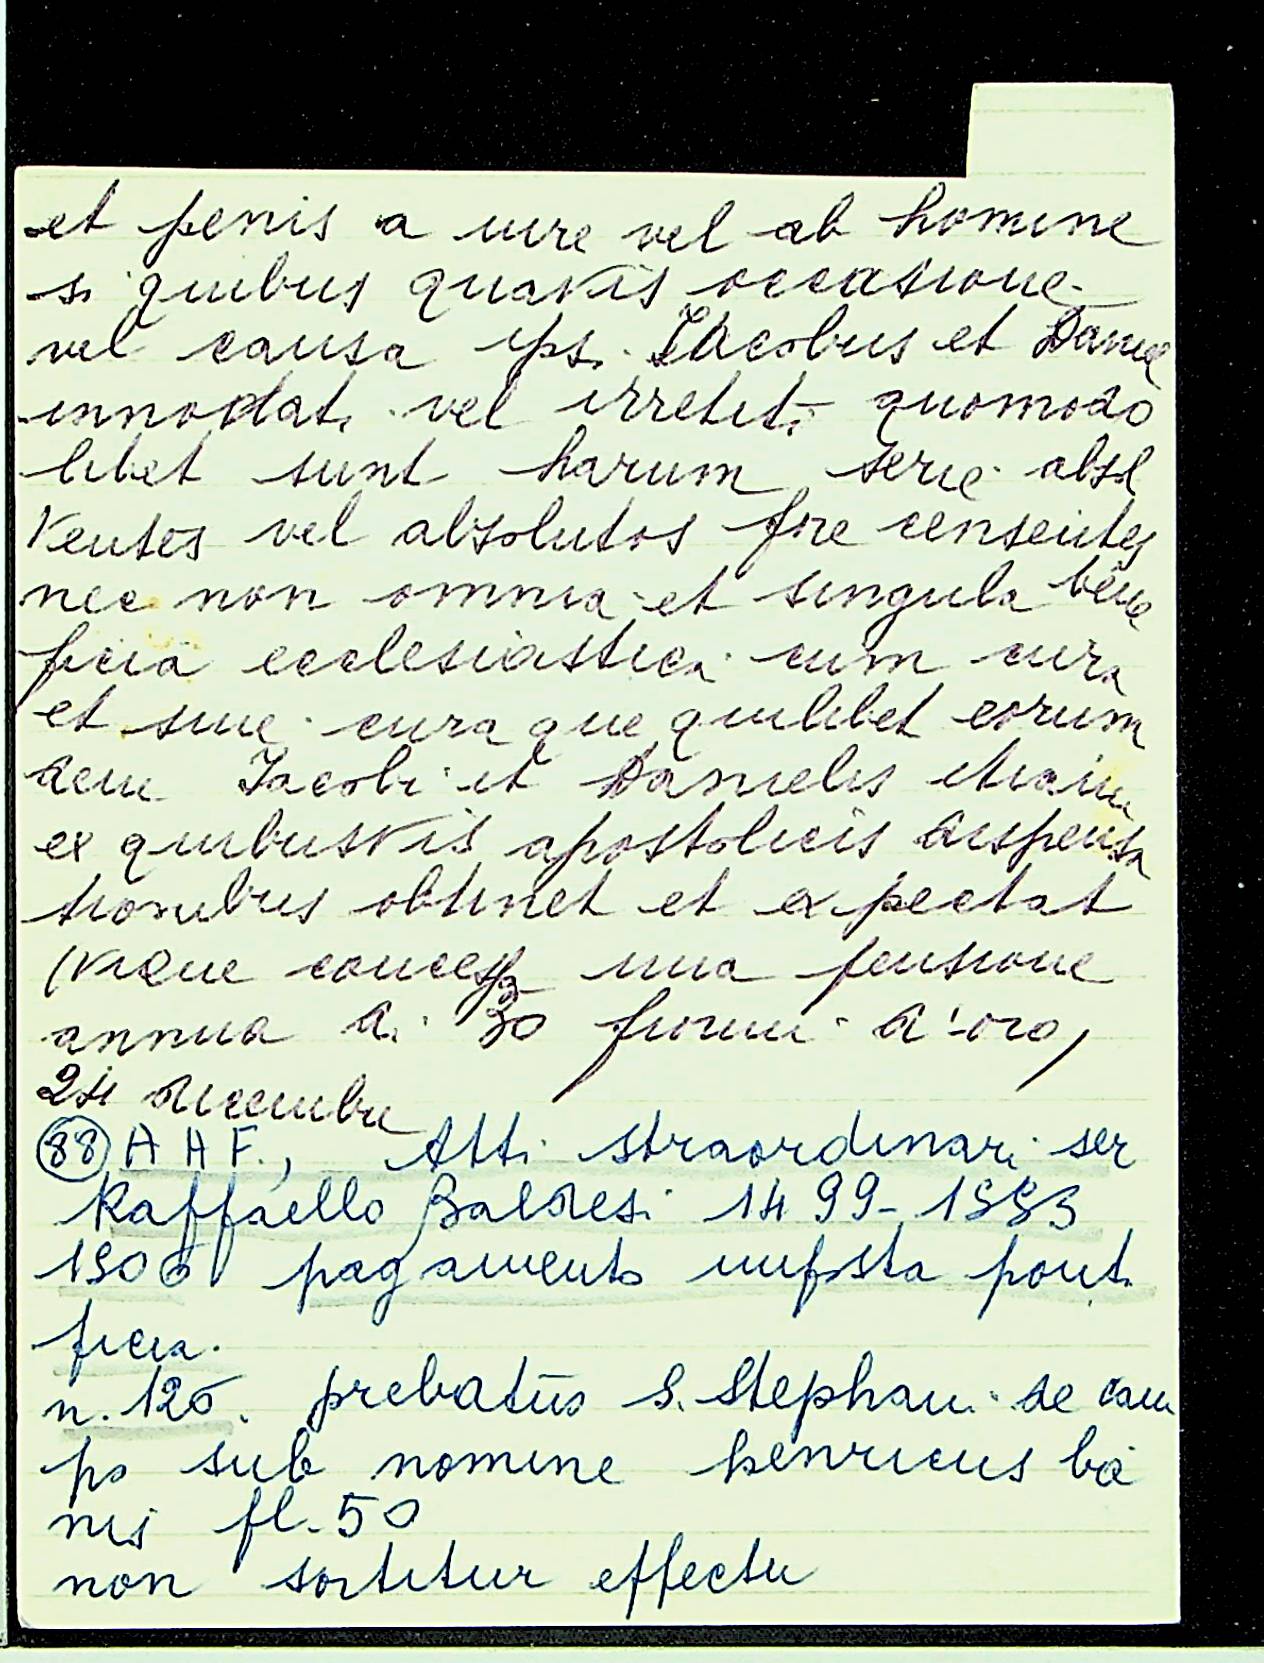 et penis a iure vel ab homine
si quibus quavis occasione
vel causa ips. Iacobus et Daniel
innodati vel irretiti quomodo
libet sunt harum serie absl
ventes vel absolutos fore censentes
nec non omnia et singula bene
ficia ecclesiastica cum cura
et sine cura que quilibet eorum
dem Iacobi et Danielis etiam
ex quibusvis apostolicis dispensa
tionibus obtinet et expectat
(viene concessa una pensione
annua di 30 fiorini d'oro,
24 dicembre
(88) A A F., Atti straordinari ser
Raffaello Baldesi 1499-1553
1500 pagamento imposta ponti
ficia.
n. 126. prebatus S. Stephani de cam
po sub nomine henricus
nis fl. 50
non sortitur effectu